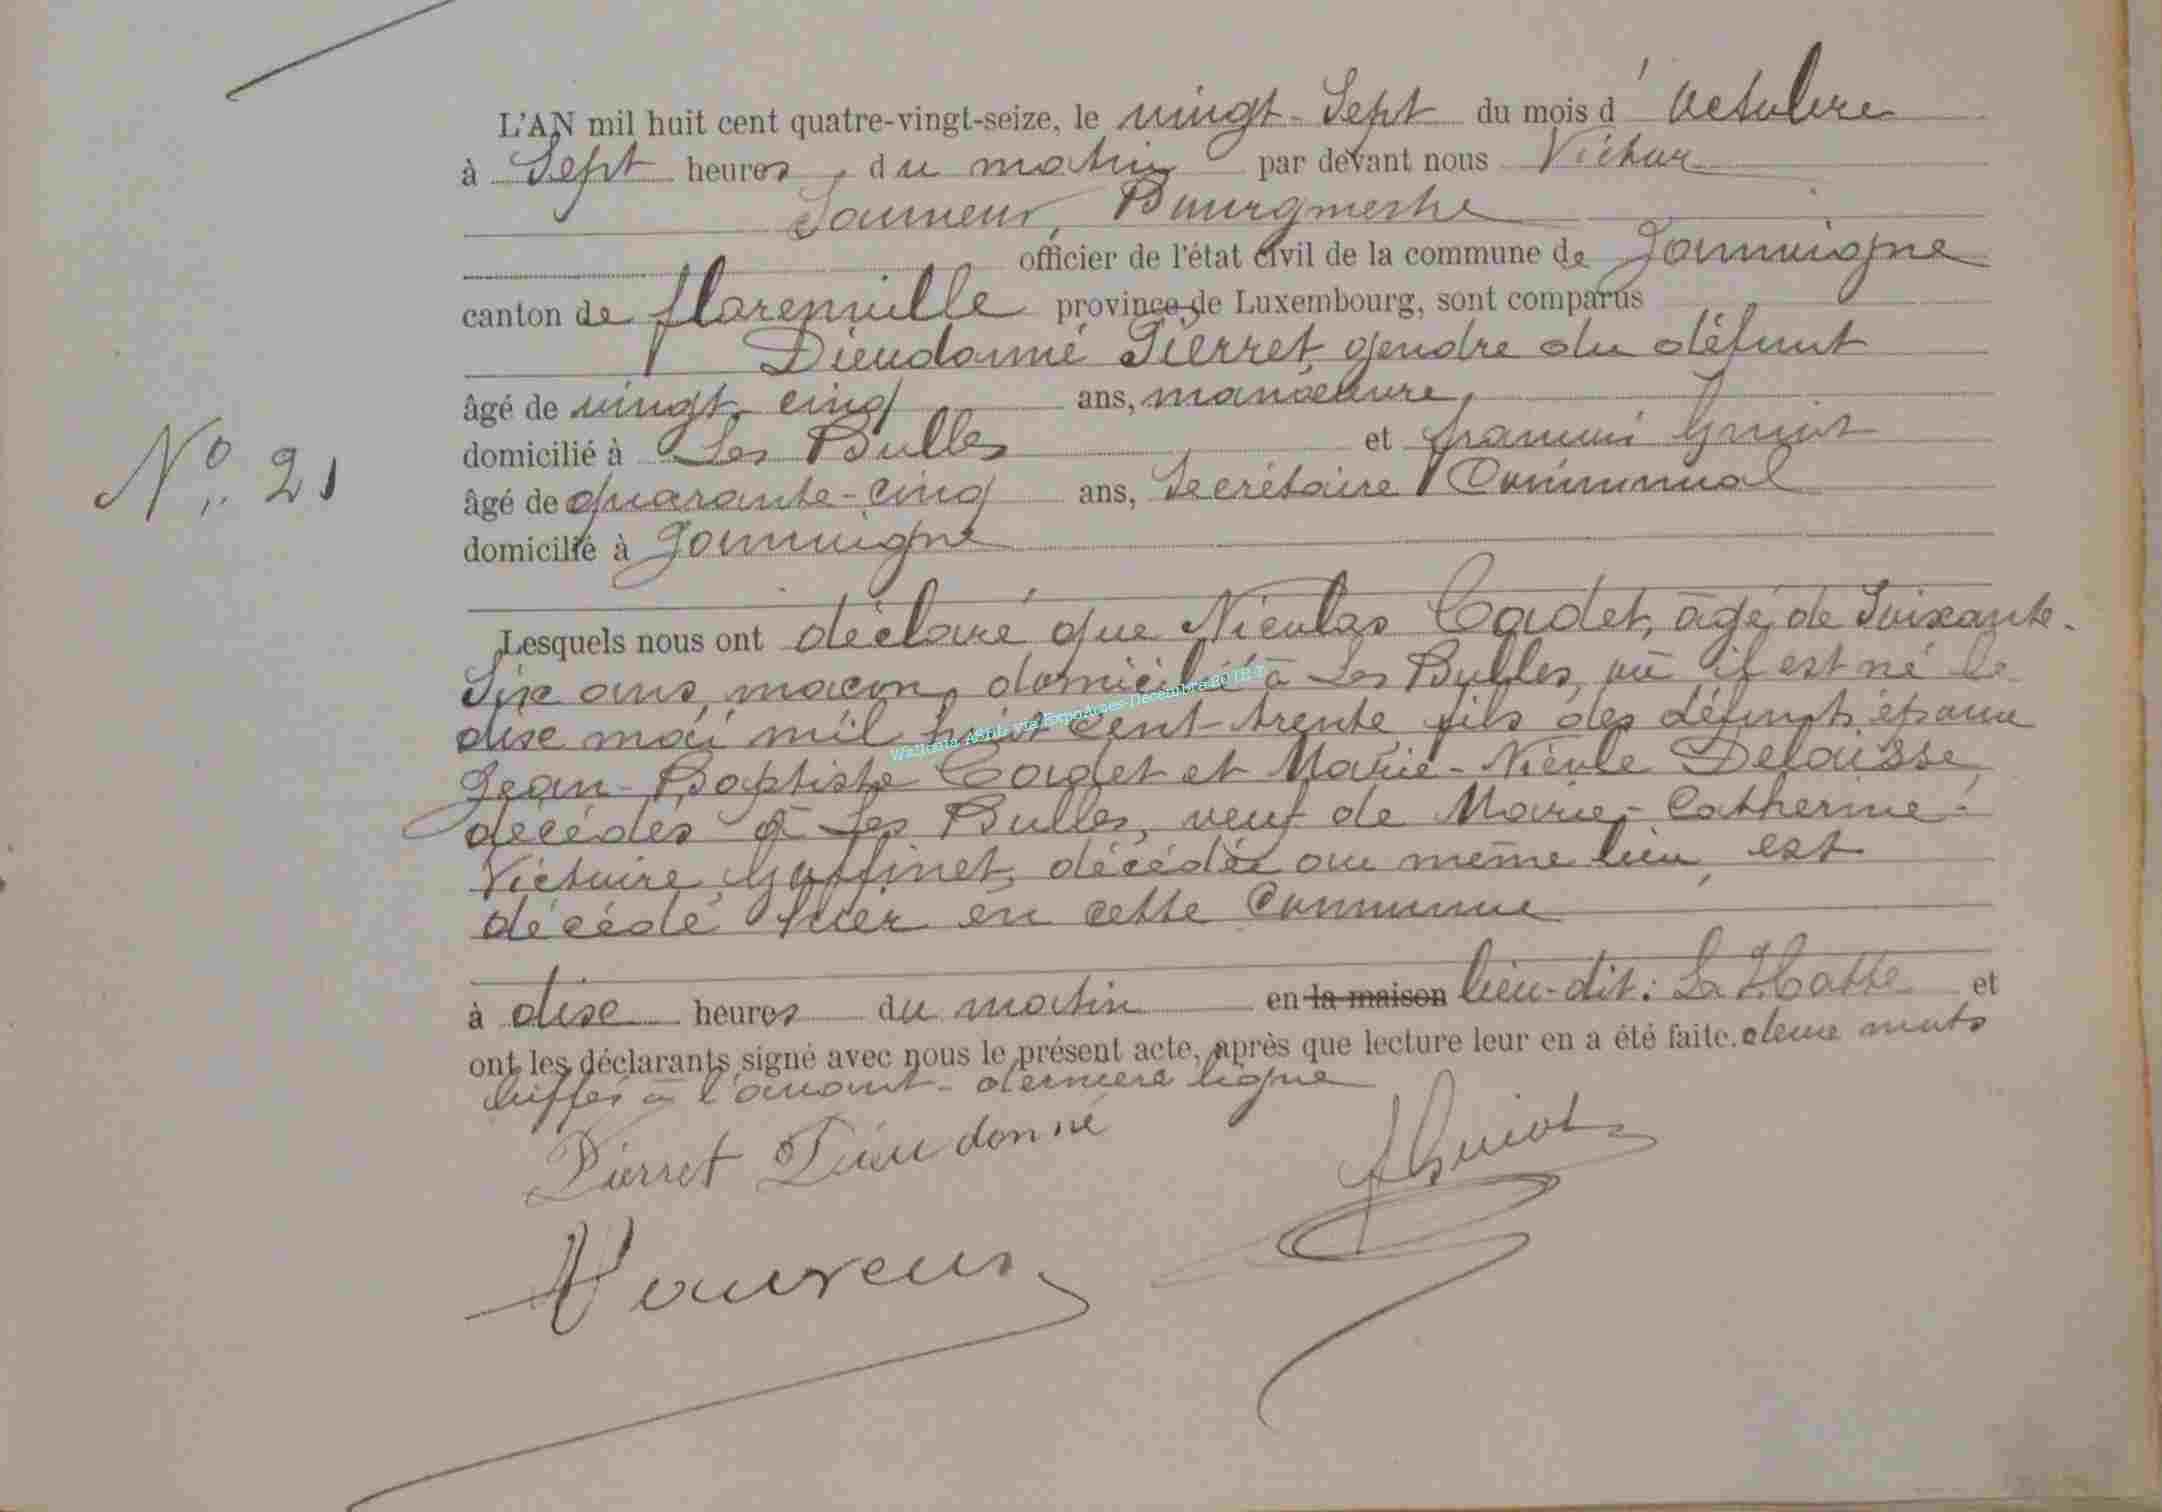 L'AN mil huit cent quatre-vingt-seize, le vingt-Sept du mois d'Octobre
à Sept heures, du matin par devant nous Victor
Bourgmestre
officier de l'état civil de la commune de Jamoigne
canton de florenville province de Luxembourg, sont comparus
Dieudonné Pierret, gendre du défunt
âgé de vingt-cinq ans, manœuvre,
domicilié à Les Bulles et françois Guiot
âgé de quarante-cinq ans, Secrétaire Communal
domicilié à Jamoigne
N° 21
Lesquels nous ont déclaré que Nicolas Cadet, âgé de Soixante-
Six ans, maçon, domicilié à Les Bulles, où il est né le
dix mai mil huit cent-trente fils des défunts époux
Wallonia ASBL via ExpoActes-Décembre 2018
Jean-Baptiste Cadet et Marie-Nicole Delaisse,
décédés à Les Bulles, veuf de Marie-Catherine-
Victoire Goffinet, décédée au même lieu, est
décédé hier en cette Commune
à dix heures du matin en la maison lieu-dit: La Hatte et
ont les déclarants signé avec nous le présent acte, après que lecture leur en a été faite. deux mots
biffés à l'avant-dernière ligne
Pierret Dieudonné
f Guiot